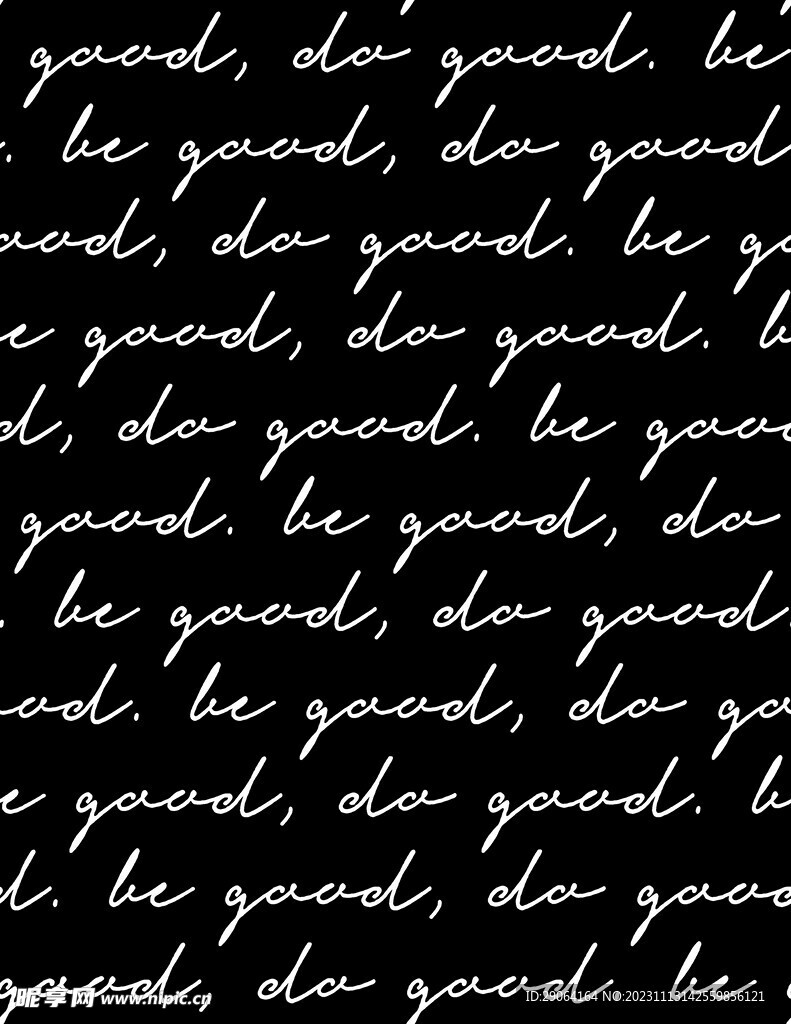 good, do good. be
. be good, do good
ood, do good. be go
e good, do good. b
d, do good. be good
good. be good, do
. be good, do good.
ood. be good, do go
e good, do good. b
d. be good, do good
good, do good be
昵享网 www.nipic.cn
ID:29064164 NO:20231113142559856121